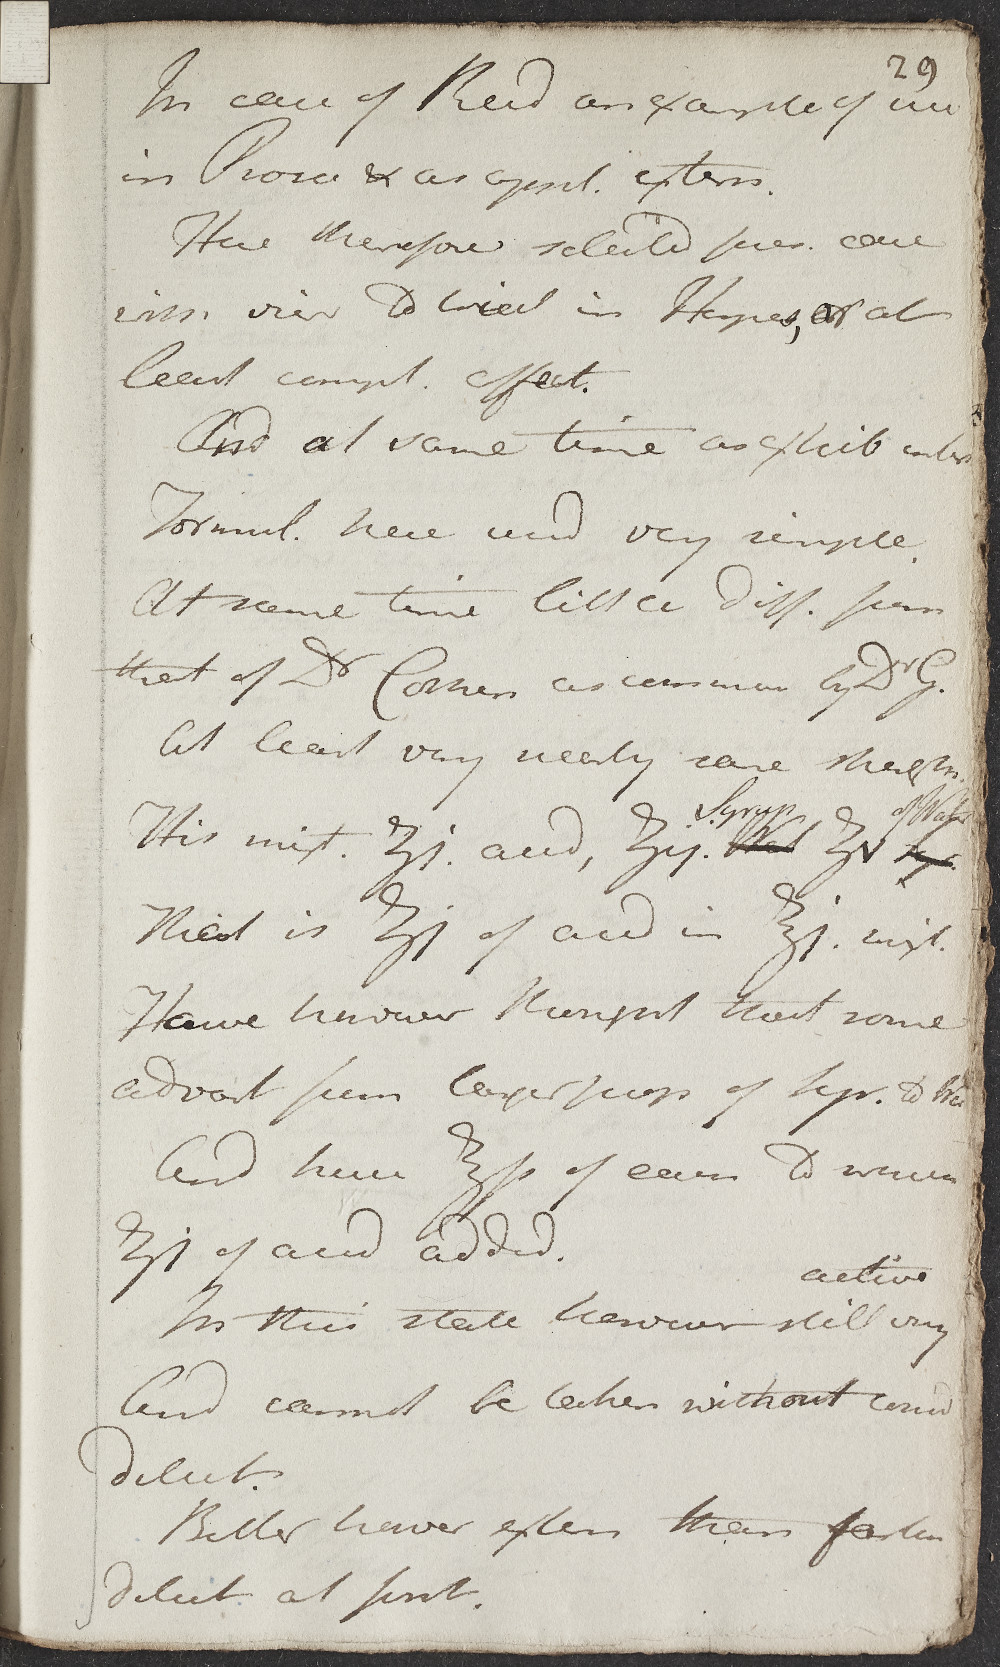 29
In case of Reid an example of use
in Psora & as appl. extern.
Have therefore selected pres. case
with view to trial in Herpes, or at
least compl. affect.
And at same time as exhib
Formul. here used very simple.
At same time little diff. from
that of Dr as common by Dr G.
At least very nearly same strength.
His mixt. ʒj. acid, ʒij. Syrup ʒv of Water
That is ʒj of acid in ʒj. mixt.
Have however thought that some
advant from larger prop of Syr. to Wat
And have ʒss of each to which
ʒj of acid added.
In this state however still very active
And cannot be taken without consid
dilut.
Better however extern than farther
dilut. at first.